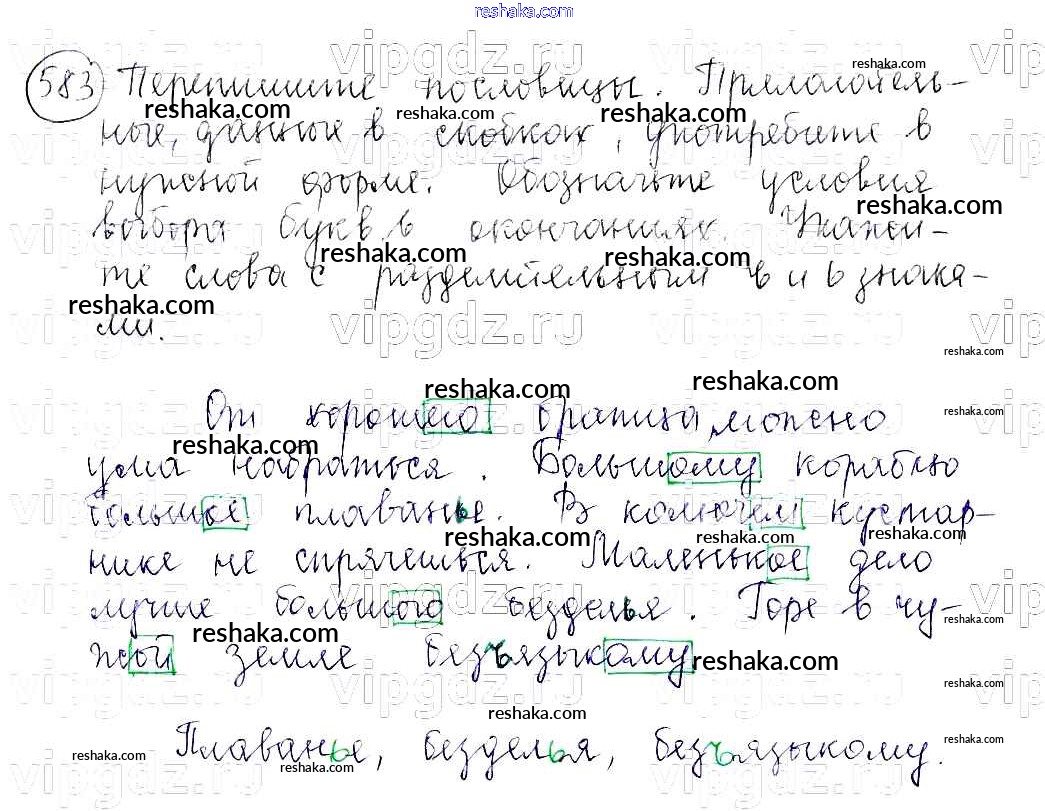 reshaka.com
583 Перепишите пословицы. Прилагатель-
ные, данные в скобках, употребите в
нужной форме. Обозначьте условия
выбора букв в окончаниях. Укажи-
те слова с разделительным ъ и ь знака-
ми.
От хорошего братца можно
ума набраться. Большому кораблю
большое плаванье. В колючем кустар-
нике не спрячешься. Маленькое дело
лучше большого безделья. Горе в чу-
жой земле безъязыкому
Плаванье, безделья, безъязыкому.